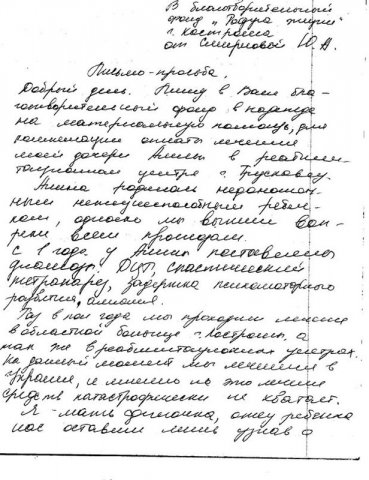 В благотворительный
фонд "Радуга жизни"
г. Кострома
от Смирновой Ю.А.
Письмо-просьба.
Добрый день. Пишу в Ваш бла-
готворительный фонд в надежде
на материальную помощь, для
компенсации оплаты лечения
моей дочери Алины в реабили-
тационном центре г. Трускавец.
Алина родилась недоношен-
ным нежизнеспособным ребен-
ком, однако мы выжили воп-
реки всем прогнозам.
С 1 года у Алины поставлены
диагнозы: ДЦП, спастический
тетрапарез, задержка психомоторного
развития,
Раз в пол года мы проходим лечение
в областной больнице г. Костромы, а
так же в реабилитационных центрах.
На данный момент мы лечимся в
Украине, и именно на это лечение
средств катастрофически не хватает.
Я - мать одиночка, отец ребенка
нас оставил лишь узнав о